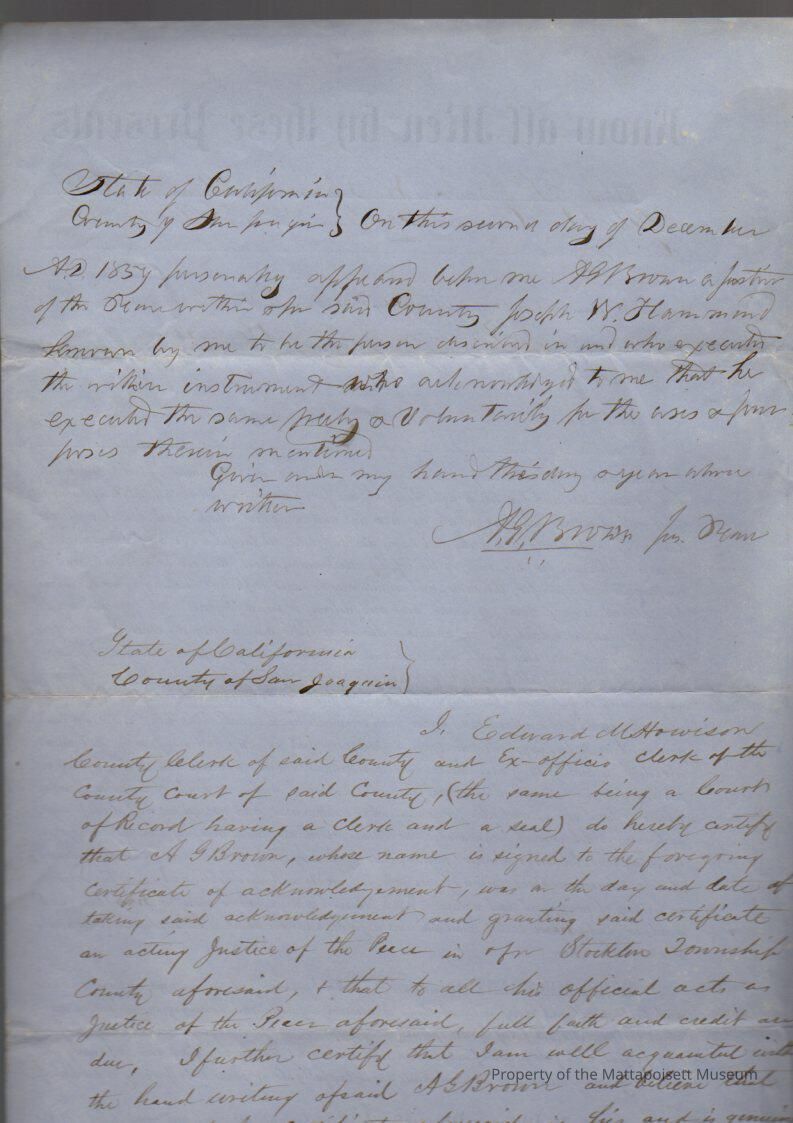 Know all Men by these Presents
State of California
County of San Joaquin } On this second day of December
AD 1859 personally appeard before me AG Brown a Justice
of the Peace within & for said County Joseph W. Hammond
known by me to be the person described in and who executed
the within instrument who acknowledged to me that he
executed the same freely & Voluntarily for the uses & pur
poses therein mentioned
Given under my hand this day & year above
written
A.G. Brown Jus. Peace
State of California
County of San Joaquin }
I, Edward M Howison
County Clerk of said County and Ex-officio Clerk of the
County Court of said County, (the same being a Court
of Record having a Clerk and a seal) do hereby certify
that A G Brown, whose name is signed to the foregoing
certificate of acknowledgement, was on the day and date of
taking said acknowledgement and granting said certificate
an acting Justice of the Peace in & for Stockton Township
County aforesaid, & that to all his official acts as
Justice of the Peace aforesaid, full faith and credit are
due, I further certify that I am well acquainted with
the hand writing of said A G Brown and believe that
his and is genuine
Property of the Mattapoisett Museum